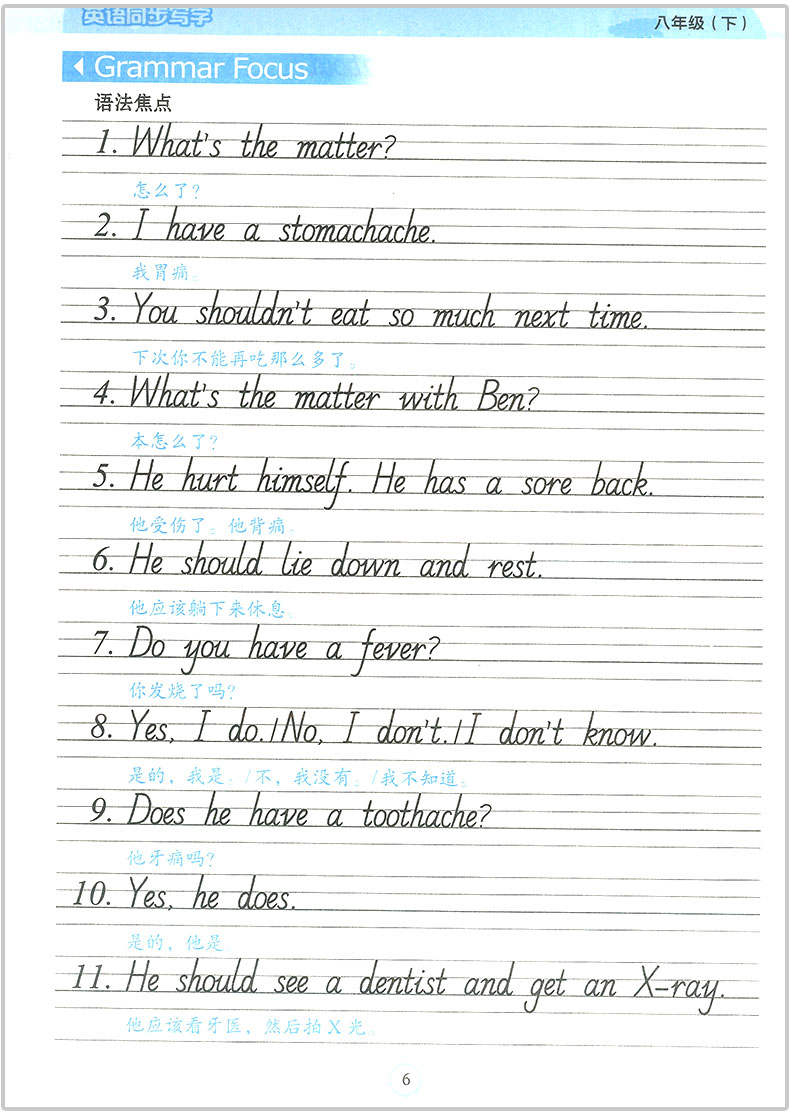 英语同步写字
八年级（下）
Grammar Focus
语法焦点
1. What's the matter?
怎么了？
2. I have a stomachache.
我胃痛。
3. You shouldn't eat so much next time.
下次你不能再吃那么多了。
4. What's the matter with Ben?
本怎么了？
5. He hurt himself. He has a sore back.
他受伤了。他背痛。
6. He should lie down and rest.
他应该躺下来休息。
7. Do you have a fever?
你发烧了吗？
8. Yes, I do./No, I don't./I don't know.
是的，我是。/不，我没有。/我不知道。
9. Does he have a toothache?
他牙痛吗？
10. Yes, he does.
是的，他是
11. He should see a dentist and get an X-ray.
他应该看牙医，然后拍X光。
6